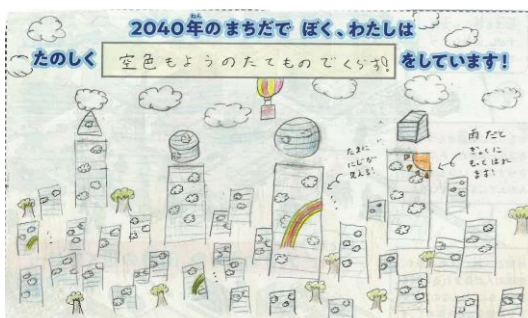 2040年のまちだで ぼく、わたしは
たのしく 空色もようのたてものでくらす! をしています!
たまに
にじが
見える!
雨だと
ぎゃくに
もっとはれ
ます!